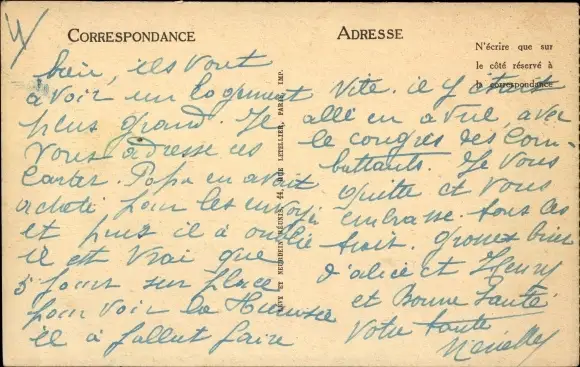 4
CORRESPONDANCE
bien, ils vont
avoir un logement
plus grand. Je
vous adresse ces
Cartes. Papa en avait
acheté pour les envoyé
et puis il à oublié
il est vrai que
5 jours sur place
pour voir la
il à fallut faire
ADRESSE
N'écrire que sur
le côté réservé à
la correspondance
vite. il y était
allé en avril avec
le congrès des Com-
battants. Je vous
quitte et vous
embrasse tous les
trois. Grosses bises
d'alice et Henry
et Bonne Santé
Votre tante
LÉVY ET NEURDEIN RÉUNIS, 44, RUE LETELLIER, PARIS, IMP.